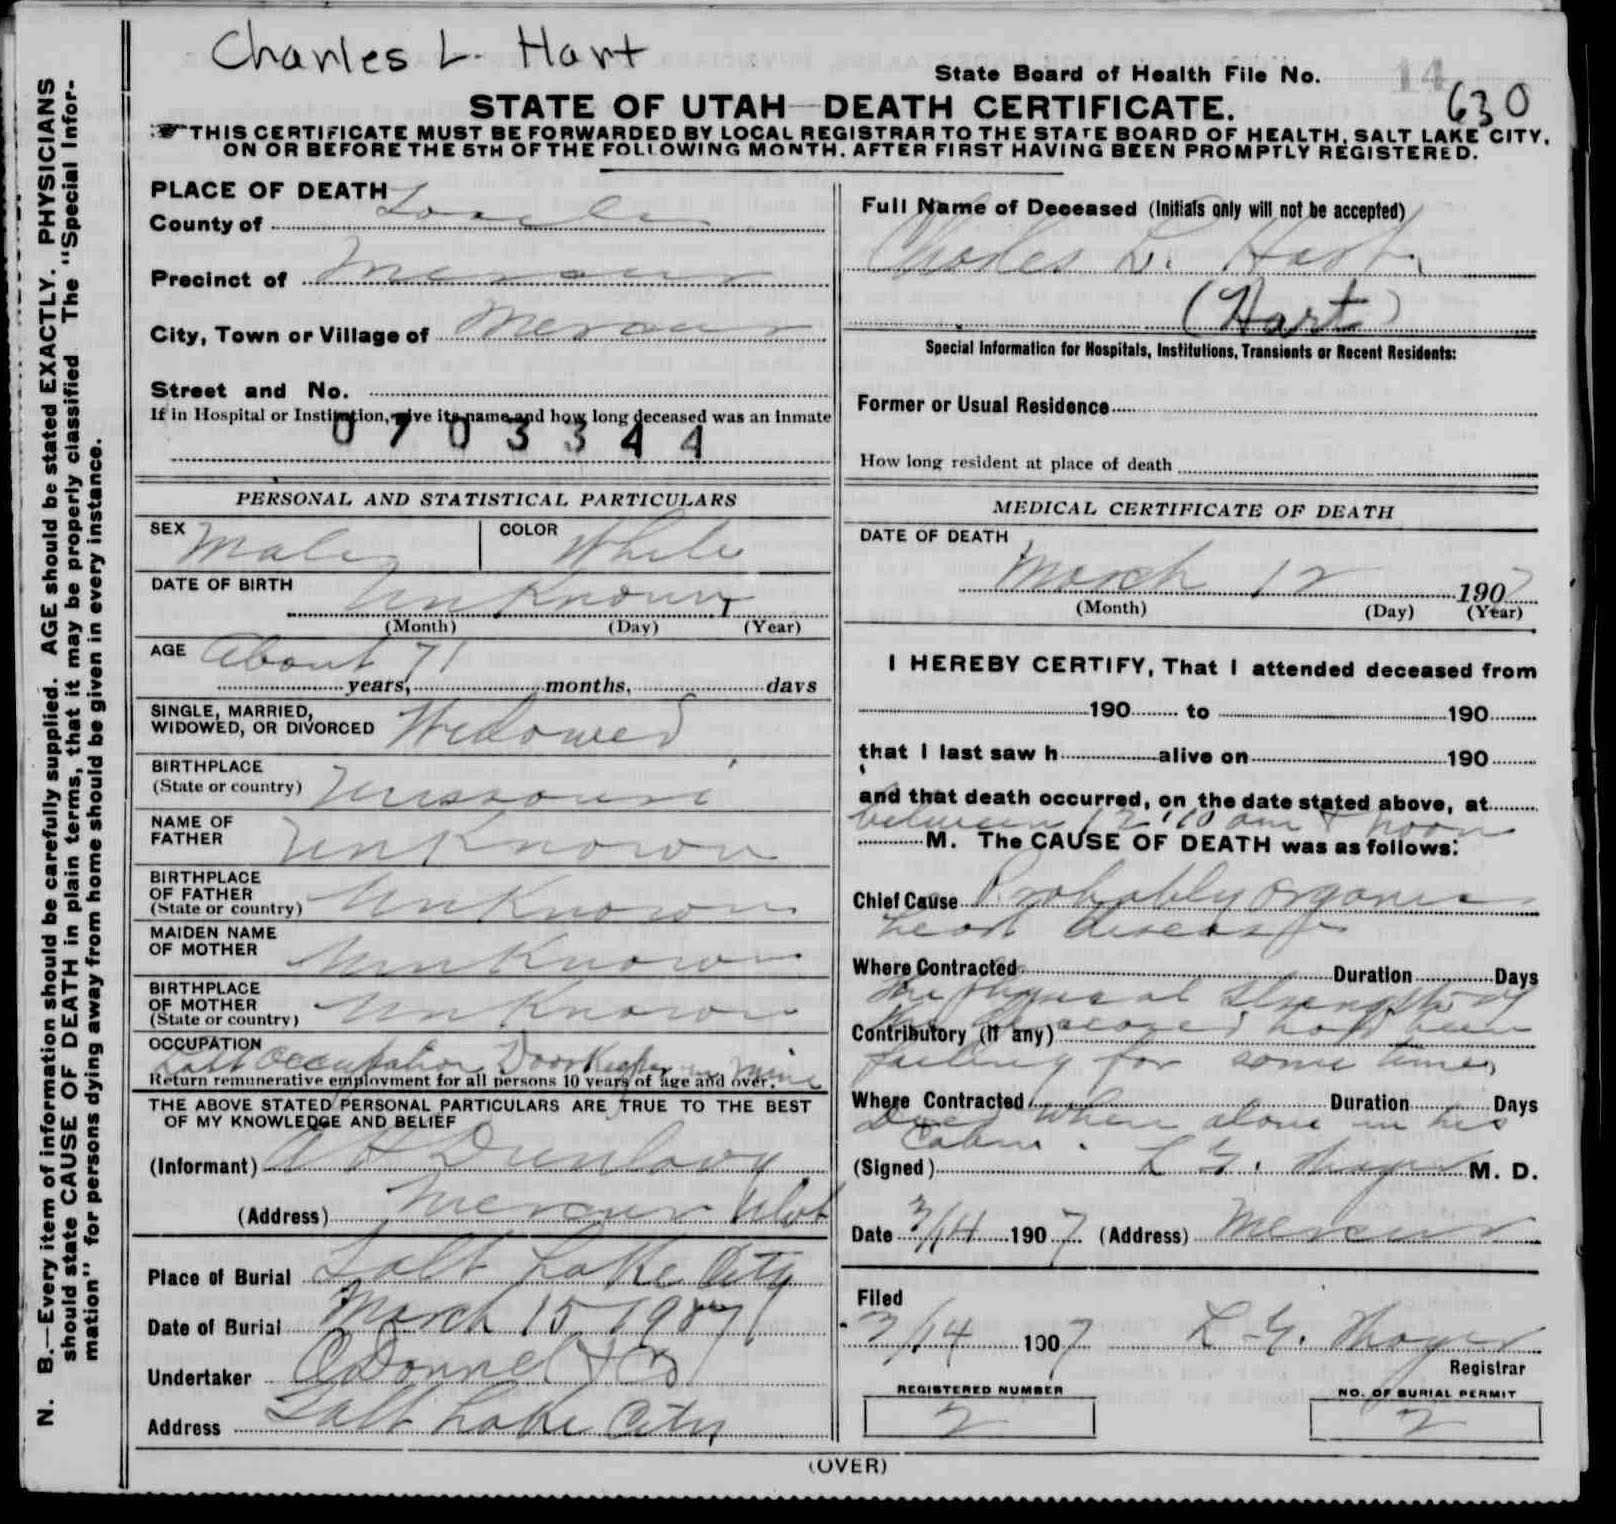 Charles L. Hart
State Board of Health File No. 14
630
STATE OF UTAH—DEATH CERTIFICATE.
THIS CERTIFICATE MUST BE FORWARDED BY LOCAL REGISTRAR TO THE STATE BOARD OF HEALTH, SALT LAKE CITY,
ON OR BEFORE THE 5TH OF THE FOLLOWING MONTH, AFTER FIRST HAVING BEEN PROMPTLY REGISTERED.
N. B.—Every item of information should be carefully supplied. AGE should be stated EXACTLY. PHYSICIANS
should state CAUSE OF DEATH in plain terms, that it may be properly classified The "Special Infor-
mation" for persons dying away from home should be given in every instance.
PLACE OF DEATH
County of Tooele
Precinct of Mercur
City, Town or Village of Mercur
Street and No.
If in Hospital or Institution, give its name and how long deceased was an inmate
0703344
PERSONAL AND STATISTICAL PARTICULARS
SEX Male COLOR White
DATE OF BIRTH Unknown
(Month) (Day) (Year)
AGE About 71
years, months, days
SINGLE, MARRIED,
WIDOWED, OR DIVORCED Widowed
BIRTHPLACE
(State or country) Missouri
NAME OF
FATHER Unknown
BIRTHPLACE
OF FATHER
(State or country) Unknown
MAIDEN NAME
OF MOTHER Unknown
BIRTHPLACE
OF MOTHER
(State or country) Unknown
OCCUPATION
Last Occupation Doorkeeper in mine
Return remunerative employment for all persons 10 years of age and over.
THE ABOVE STATED PERSONAL PARTICULARS ARE TRUE TO THE BEST
OF MY KNOWLEDGE AND BELIEF
(Informant) A H Dunlavy
(Address) Mercur Utah
Place of Burial Salt Lake City
Date of Burial March 15 1907
Undertaker O'Donnel & Co
Address Salt Lake City
Full Name of Deceased (Initials only will not be accepted)
Charles L. Hart
(Hart)
Special Information for Hospitals, Institutions, Transients or Recent Residents:
Former or Usual Residence
How long resident at place of death
MEDICAL CERTIFICATE OF DEATH
DATE OF DEATH
March 12 1907
(Month) (Day) (Year)
I HEREBY CERTIFY, That I attended deceased from
190 to 190
that I last saw h alive on 190
and that death occurred, on the date stated above, at
between 12:10 am & noon
M. The CAUSE OF DEATH was as follows:
Chief Cause Probably organic
heart disease
Where Contracted Duration Days
The physical strength of
Contributory (if any)
the deceased had been
failing for some time,
Where Contracted Duration Days
Died when alone in his
Cabin.
(Signed) L G. Thayer M. D.
Date 3/14 1907 (Address) Mercur
Filed
3/14 1907 L G. Thayer
Registrar
REGISTERED NUMBER
2
NO. OF BURIAL PERMIT
2
(OVER)